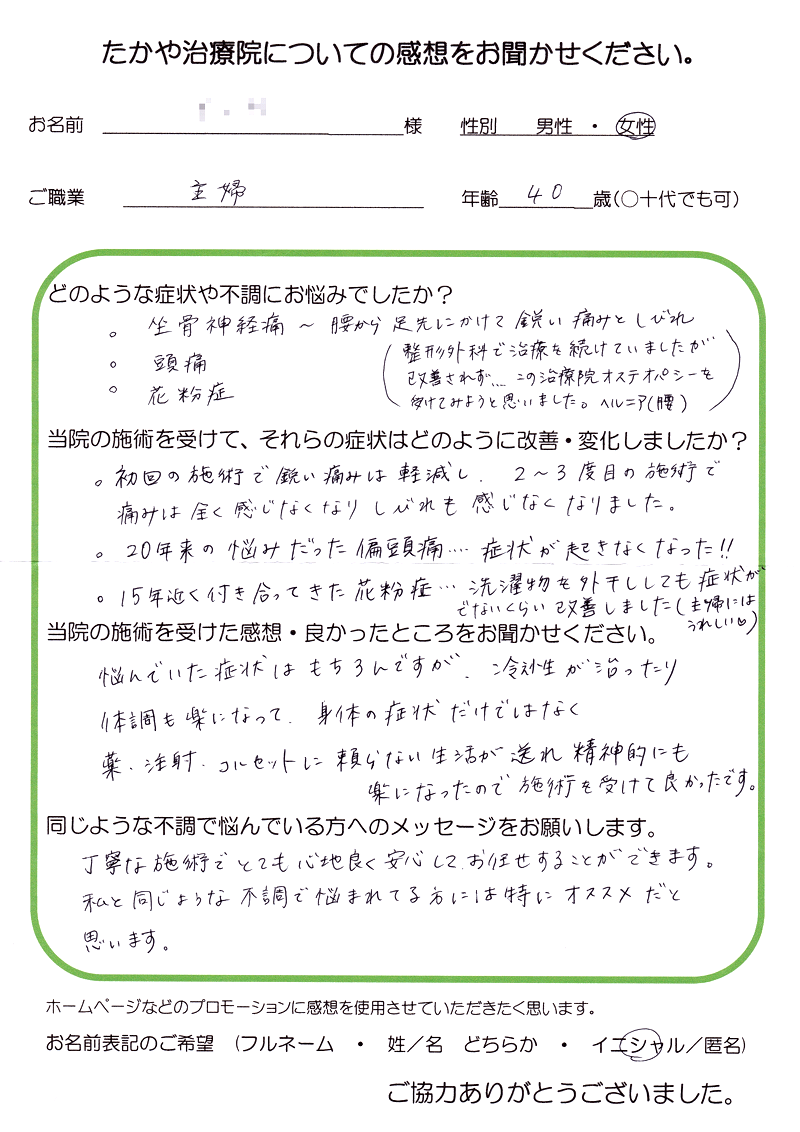 たかや治療院についての感想をお聞かせください。
お名前 様 性別 男性 ・ 女性
ご職業 主婦 年齢 40 歳(○十代でも可)
どのような症状や不調にお悩みでしたか?
。坐骨神経痛 ~ 腰から足先にかけて鋭い痛みとしびれ
。頭痛
。花粉症
(整形外科で治療を続けていましたが
改善されず… この治療院オステオパシーを
受けてみようと思いました。ヘルニア(腰))
当院の施術を受けて、それらの症状はどのように改善・変化しましたか?
。初回の施術で鋭い痛みは軽減し、2~3度目の施術で
痛みは全く感じなくなりしびれも感じなくなりました。
。20年来の悩みだった偏頭痛…. 症状が起きなくなった!!
。15年近く付き合ってきた花粉症… 洗濯物を外干ししても症状が
でないくらい改善しました(主婦には
うれしい♡)
当院の施術を受けた感想・良かったところをお聞かせください。
悩んでいた症状はもちろんですが、冷え性が治ったり
体調も楽になって、身体の症状だけではなく
薬・注射・コルセットに頼らない生活が送れ精神的にも
楽になったので施術を受けて良かったです。
同じような不調で悩んでいる方へのメッセージをお願いします。
丁寧な施術でとても心地良く安心して、お任せすることができます。
私と同じような不調で悩まれてる方には特にオススメだと
思います。
ホームページなどのプロモーションに感想を使用させていただきたく思います。
お名前表記のご希望 (フルネーム ・ 姓/名 どちらか ・ イニシャル/匿名)
ご協力ありがとうございました。